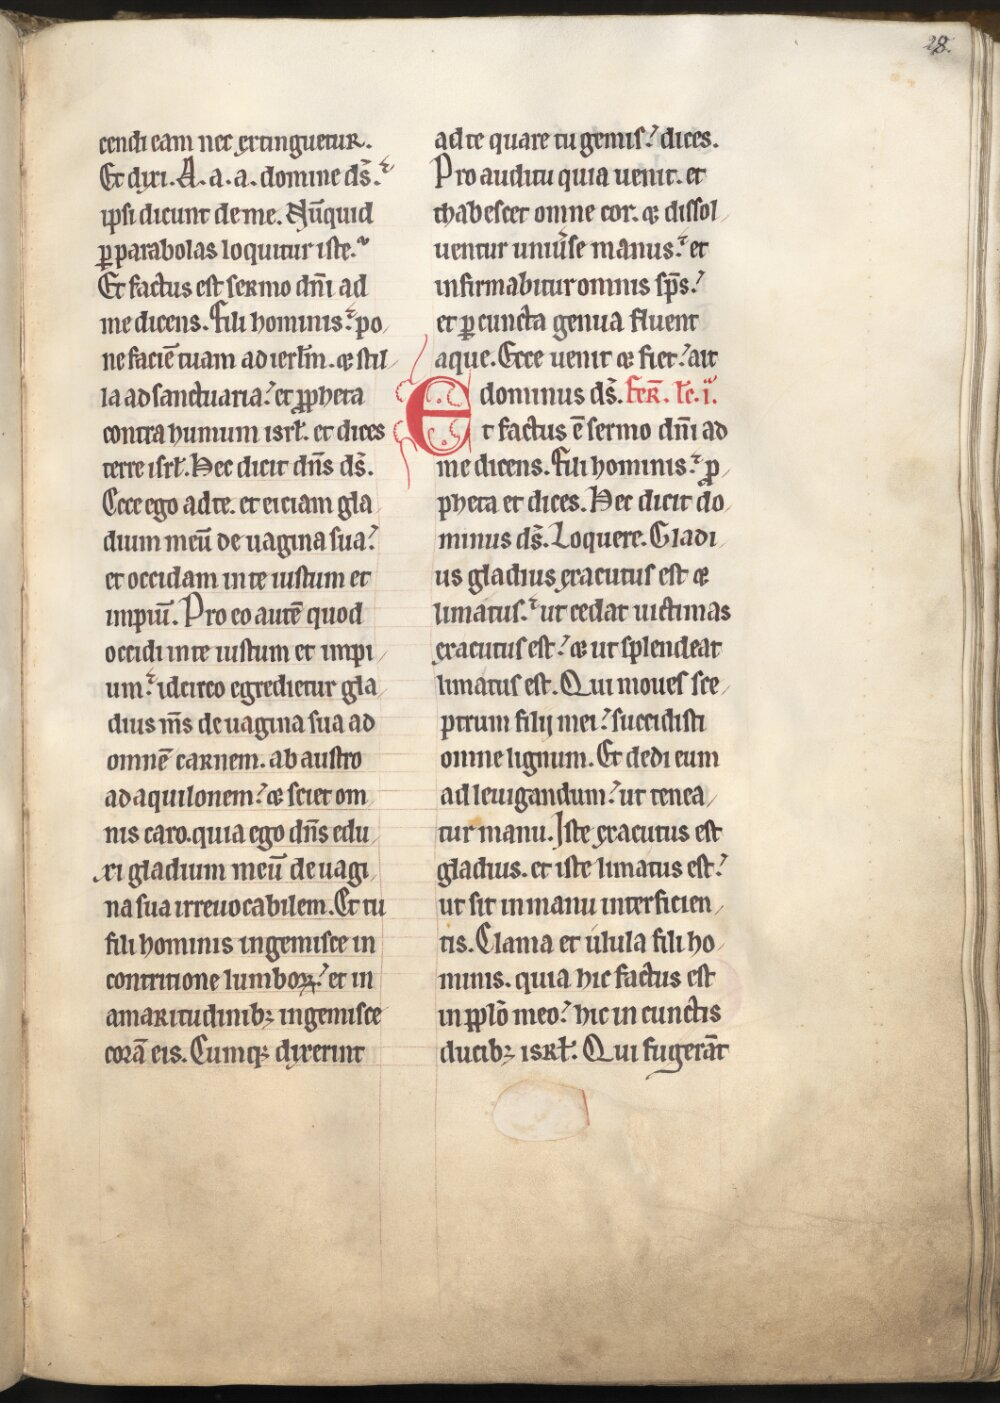 28.
cendi eam nec extinguetur.
Et dixi. A. a. a. domine ds̄.
ipsi dicunt de me. Nūquid
ꝑ parabolas loquitur iste.
Et factus est sermo dn̄i ad
me dicens. Fili hominis: po
ne faciē tuam ad ierl̄m. & stil
la ad sanctuaria: et ꝓpheta
contra humum isrl̄. et dices
terre isrl̄. Hec dicit dn̄s ds̄.
Ecce ego ad te. et eiciam gla
dium meū de uagina sua:
et occidam in te iustum et
impiū. Pro eo autē quod
occidi in te iustum et impi
um: idcirco egredietur gla
dius m̄s de uagina sua ad
omnē carnem. ab austro
ad aquilonem: & sciet om
nis caro. quia ego dn̄s edu
xi gladium meū de uagi
na sua irreuocabilem. Et tu
fili hominis ingemisce in
contritione lumboꝝ: et in
amaritudinibꝫ ingemisce
corā eis. Cumqꝫ dixerint
ad te quare tu gemis: dices.
Pro auditu quia uenit. et
thabescet omne cor. & dissol
uentur uniūse manus: et
infirmabitur omnis sp̄s:
et ꝑ cuncta genua fluent
aque. Ecce uenit & fiet: ait
dominus ds̄. fer̄. lc̄. i.
Et factus ē sermo dn̄i ad
me dicens. Fili hominis: ꝓ
pheta et dices. Hec dicit do
minus ds̄. Loquere. Gladi
us gladius exacutus est &
limatus: ut cedat uictimas
exacutus est: & ut splendeat
limatus est. Qui moues sce
ptrum filij mei: succidisti
omne lignum. Et dedi eum
ad leuigandum: ut tenea
tur manu. Iste exacutus est
gladius. et iste limatus est:
ut sit in manu interficien
tis. Clama et ulula fili ho
minis. quia hic factus est
in ppl̄o meo: hic in cunctis
ducibꝫ isrl̄: Qui fugerāt